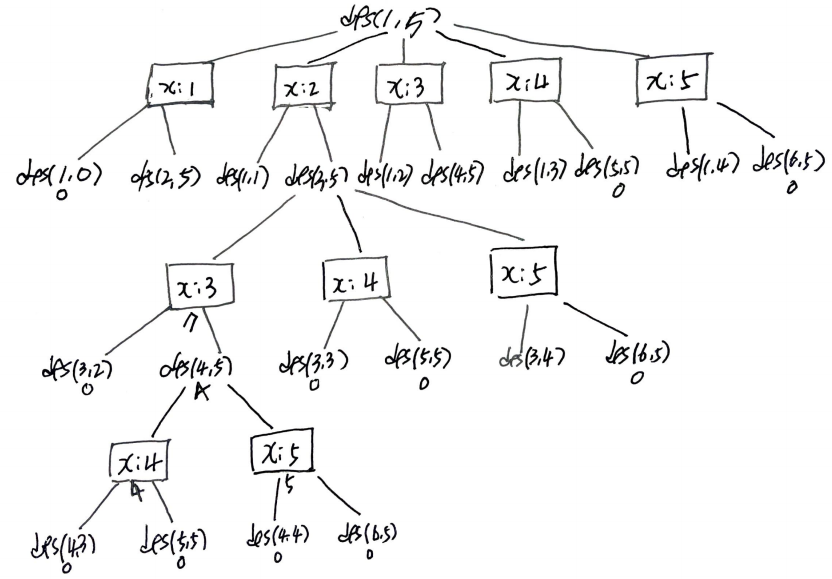 dfs(1,5)
x:1 x:2 x:3 x:4 x:5
dfs(1,0) dfs(2,5) dfs(1,1) dfs(3,5) dfs(1,2) dfs(4,5) dfs(1,3) dfs(5,5) dfs(1,4) dfs(6,5)
0 0 0
x:3 x:4 x:5
7
dfs(3,2) dfs(4,5) dfs(3,3) dfs(5,5) dfs(3,4) dfs(6,5)
0 4 0 0 0
x:4 x:5
4 5
dfs(4,3) dfs(5,5) dfs(4,4) dfs(6,5)
0 0 0 0